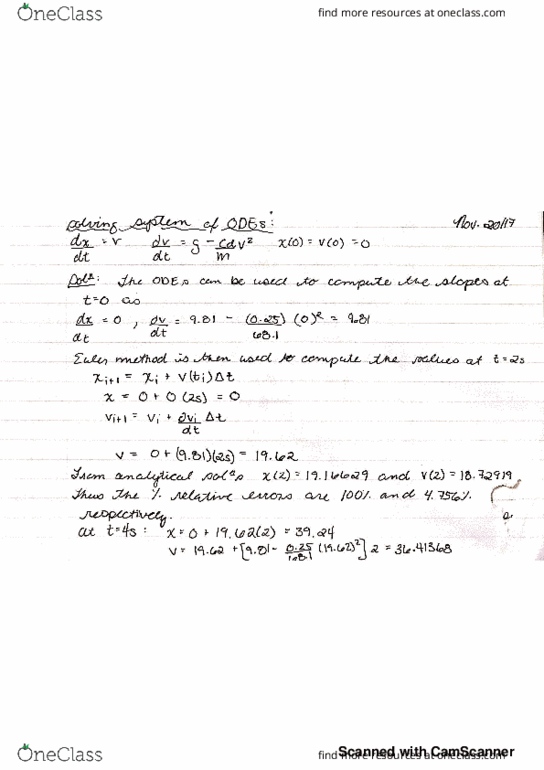 OneClass
find more resources at oneclass.com
Solving system of ODEs:
Nov. 20/17
dx/dt = v   dv/dt = g - Cdv²/m   x(0) = v(0) = 0
Solⁿ: The ODEs can be used to compute the slopes at
t=0 as
dx/dt = 0 , dv/dt = 9.81 - (0.25)/68.1 (0)² = 9.81
Euler method is then used to compute the values at t=2s
xi+1 = xi + v(ti)Δt
x = 0 + 0 (2s) = 0
vi+1 = vi + dvi/dt Δt
v = 0 + (9.81)(2s) = 19.62
From analytical solⁿs x(2) = 19.16629 and v(2) = 18.72919,
thus the % relative errors are 100% and 4.756%
respectively.
at t=4s: x = 0 + 19.62(2) = 39.24
v = 19.62 + [9.81 - 0.25/68.1 (19.62)²] 2 = 36.41368
OneClass
find more resources at oneclass.com
Scanned with CamScanner